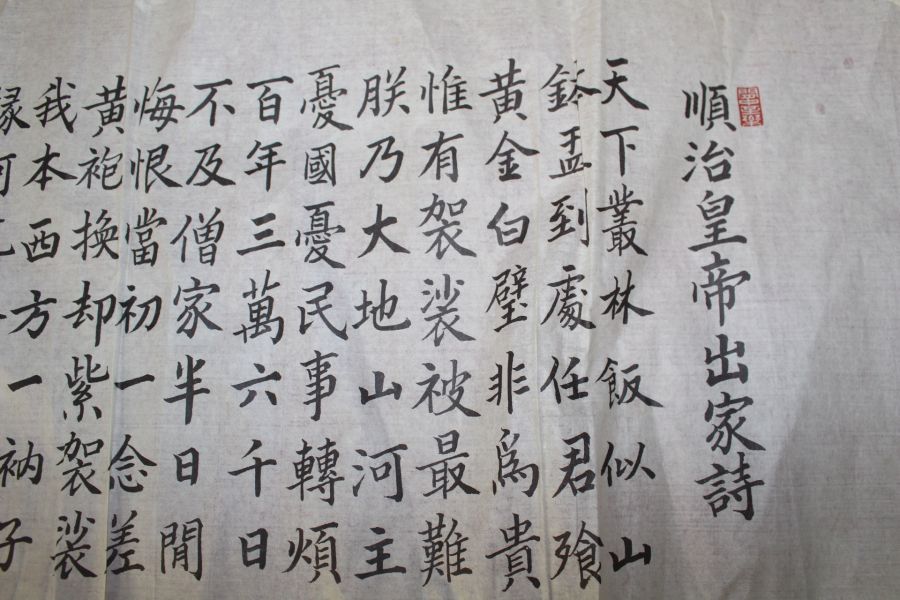 順治皇帝出家詩
天下叢林飯似山
鉢盂到處任君飱
黃金白璧非爲貴
惟有袈裟被最難
朕乃大地山河主
憂國憂民事轉煩
百年三萬六千日
不及僧家半日閒
悔恨當初一念差
黃袍換却紫袈裟
我本西方一衲子
緣